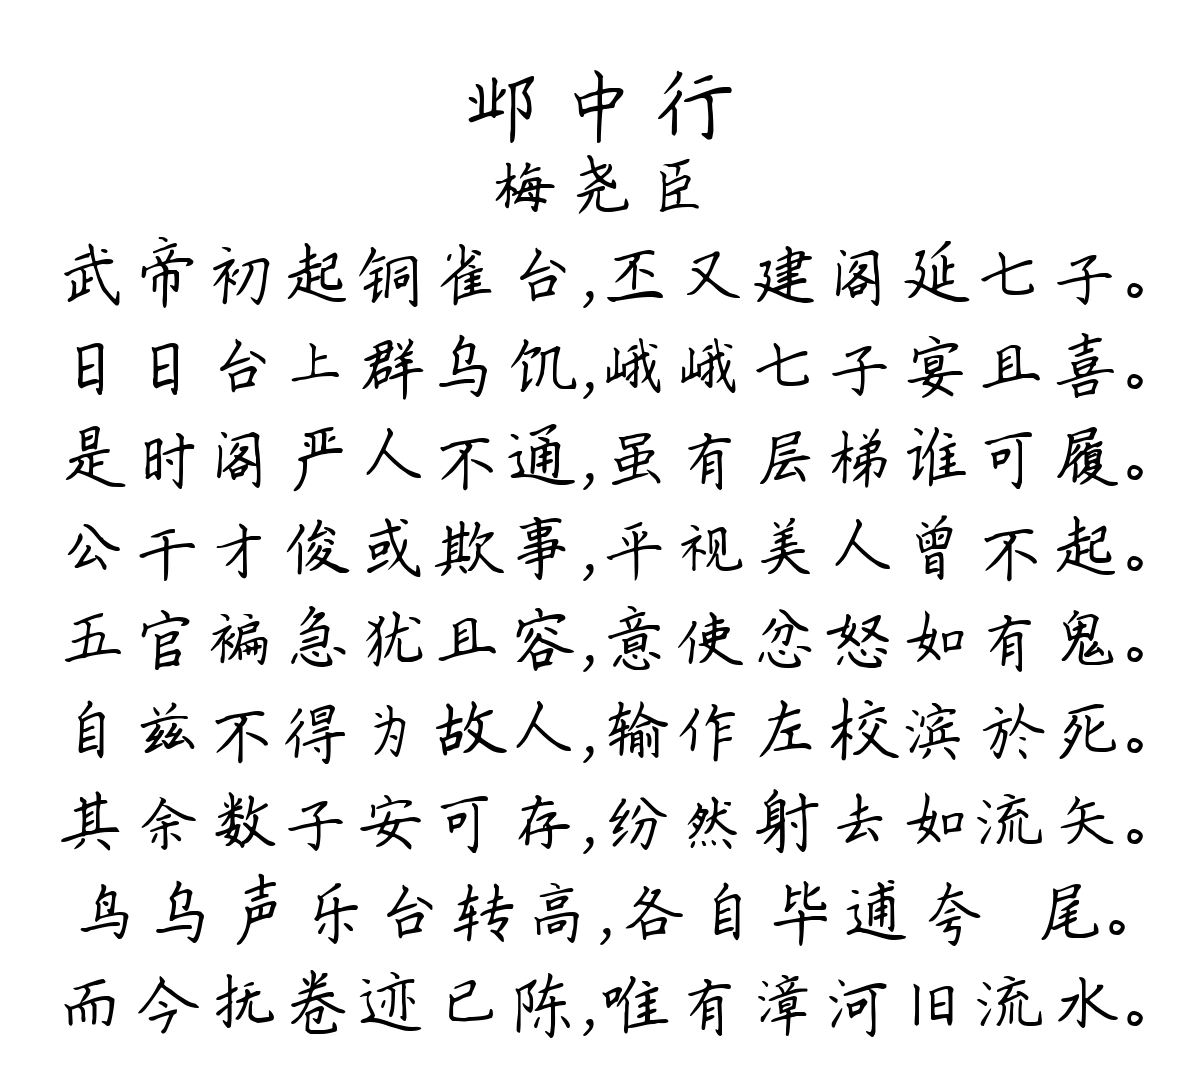 邺中行
梅尧臣
武帝初起铜雀台,丕又建阁延七子。
日日台上群乌饥,峨峨七子宴且喜。
是时阁严人不通,虽有层梯谁可履。
公干才俊或欺事,平视美人曾不起。
五官褊急犹且容,意使忿怒如有鬼。
自兹不得为故人,输作左校滨於死。
其余数子安可存,纷然射去如流矢。
鸟乌声乐台转高,各自毕逋夸 尾。
而今抚卷迹已陈,唯有漳河旧流水。